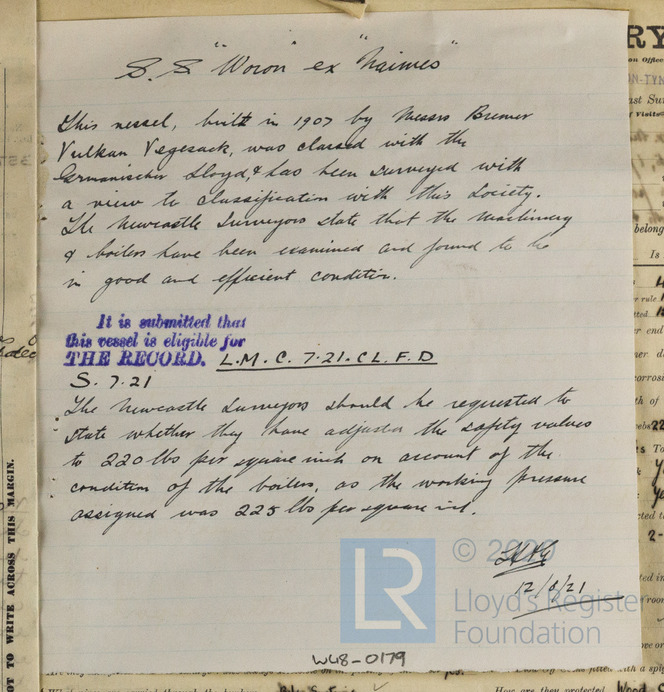 S.S. "Woron" ex "Naimes"
This vessel, built in 1907 by Messrs Bremer
Vulkan Vegesack, was classed with the
Germanischer Lloyd, & has been surveyed with
a view to classification with this Society.
The Newcastle Surveyors state that the machinery
& boilers have been examined and found to be
in good and efficient condition.
It is submitted that
this vessel is eligible for
THE RECORD. L.M.C. 7.21. C.L. F.D
S. 7.21
The Newcastle Surveyors should be requested to
state whether they have adjusted the safety valves
to 220 lbs per square inch on account of the
condition of the boilers, as the working pressure
assigned was 225 lbs per square inch.
12/8/21
© 2020
LR
Lloyd's Register
Foundation
W48-0179
OT TO WRITE ACROSS THIS MARGIN.
RY
belong
Is
How are they protected